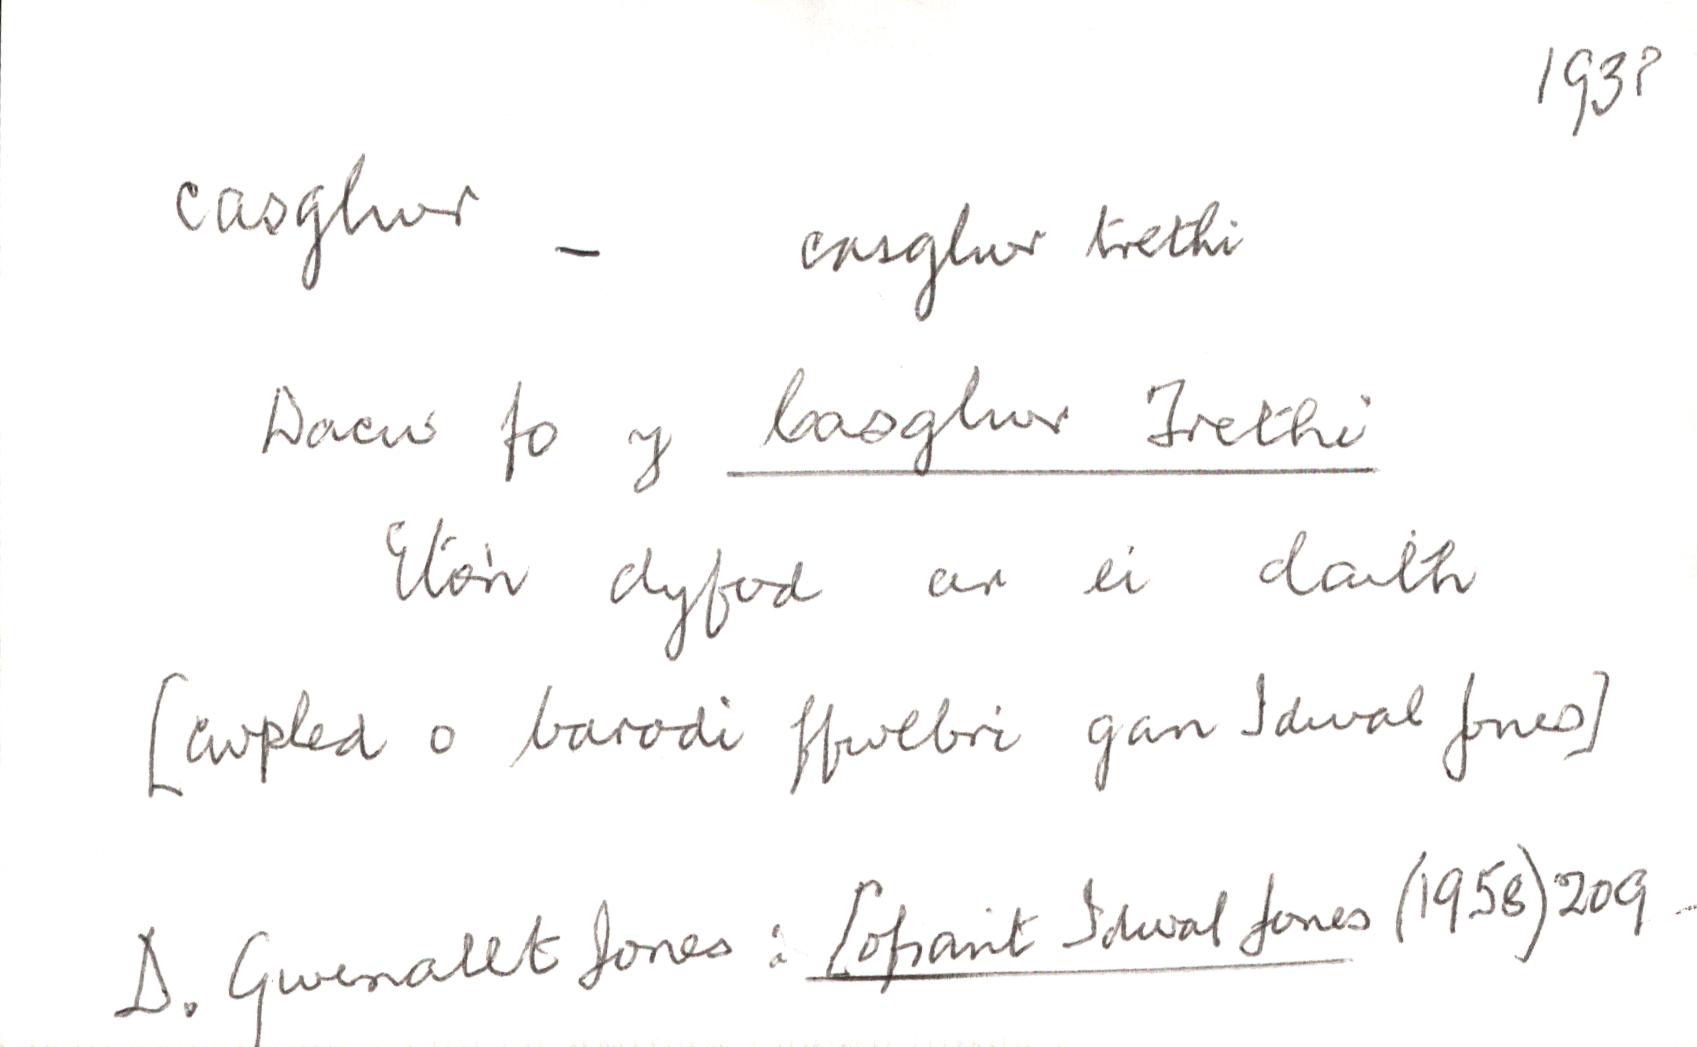 193?
casglwr – casglwr trethi
Dacw fo y Casglwr Trethi
Eto'n dyfod ar ei daith
[cwpled o barodi ffwlbri gan Idwal Jones]
D. Gwenallt Jones : Cofiant Idwal Jones (1958) 209